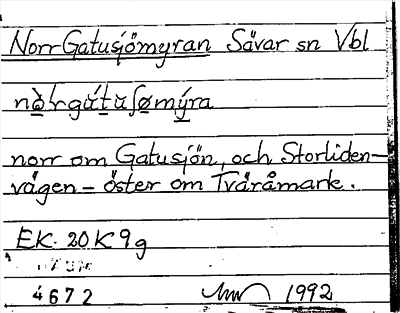 Norr Gatusjömyran Sävar sn Vbl
norr om Gatusjön, och Storliden-
vägen - öster om Tväråmark.
EK. 20 K 9 g
4672 1992